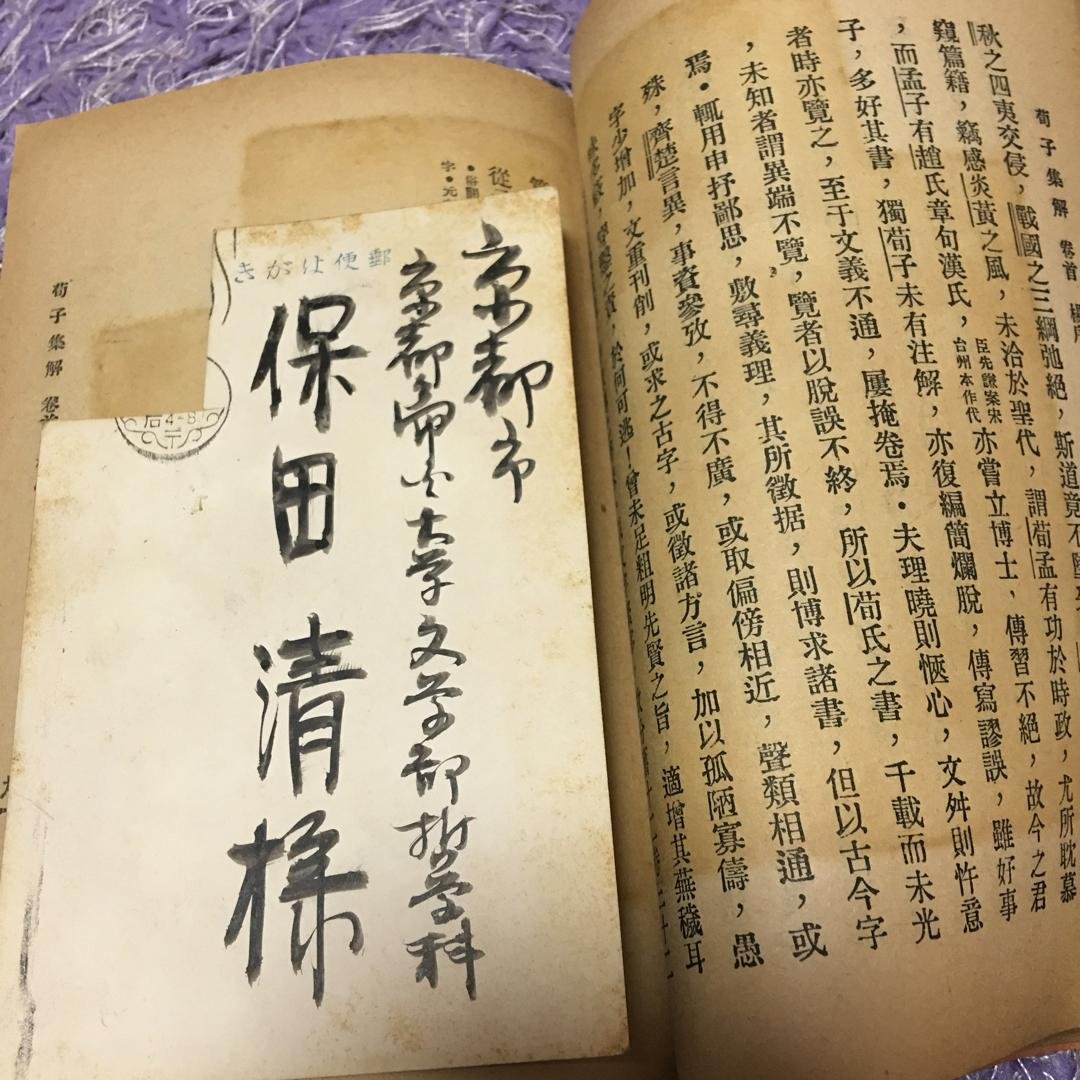 荀子集解 卷首
秋之四夷交侵，戰國之三綱弛絕，斯道竟不
窺篇籍，竊感炎黃之風，未洽於聖代，謂荀孟有功於時政，尤所耽慕
，而孟子有趙氏章句漢氏，臣先謙案宋台州本作代亦嘗立博士，傳習不絕，故今之君
子，多好其書，獨荀子未有注解，亦復編簡爛脫，傳寫謬誤，雖好事
者時亦覽之，至于文義不通，屢掩卷焉。夫理曉則愜心，文舛則忤意
，未知者謂異端不覽，覽者以脫誤不終，所以荀氏之書，千載而未光
焉。輒用申抒鄙思，敷尋義理，其所徵据，則博求諸書，但以古今字
殊，齊楚言異，事資參攷，不得不廣，或取偏傍相近，聲類相通，或
字少增加，文重刊削，或求之古字，或徵諸方言，加以孤陋寡儔，愚
於何可逃！曾未足粗明先賢之旨，適增其蕪穢耳
郵便はがき
京都市
京都帝大大学文学部哲学科
保田清様
后4-8
荀子集解 卷首